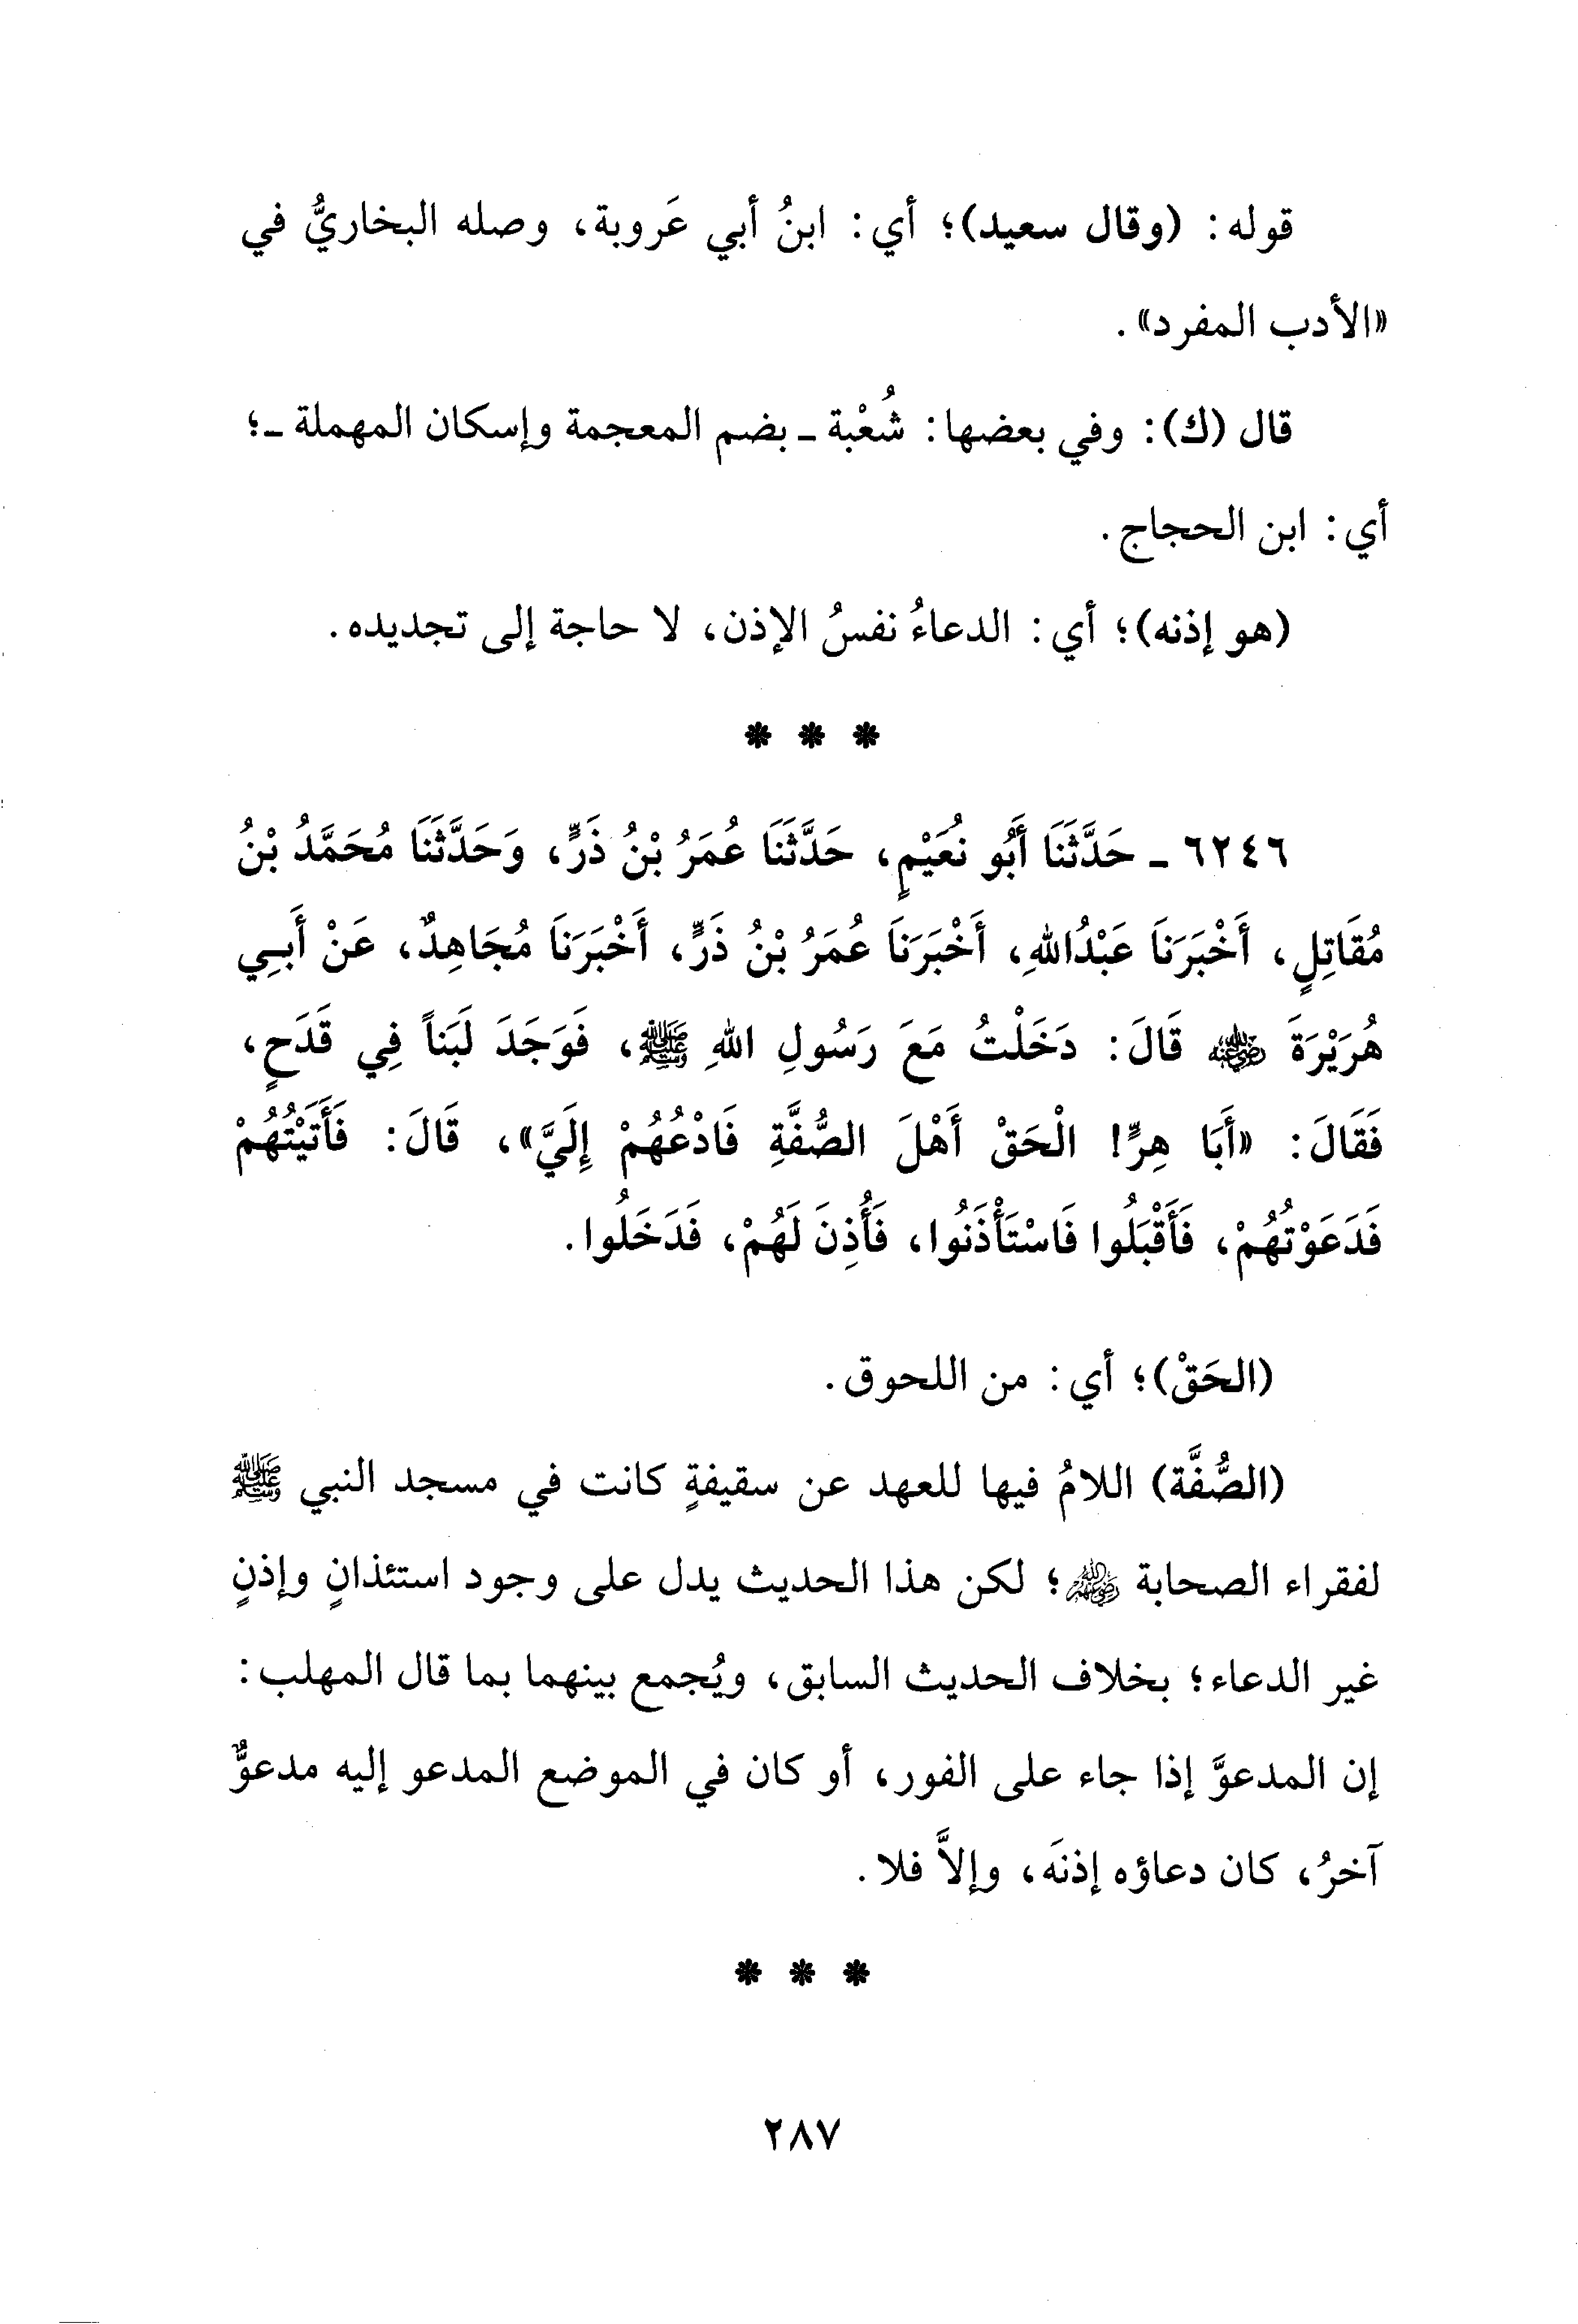 قوله: (وقال سعيد)؛ أي: ابنُ أبي عَروبة، وصله البخاريُّ في
«الأدب المفرد».
قال (ك): وفي بعضها: شُعْبة ـ بضم المعجمة وإسكان المهملة ـ؛
أي: ابن الحجاج.
(هو إذنه)؛ أي: الدعاءُ نفسُ الإذن، لا حاجة إلى تجديده.
* * *
٦٢٤٦ ـ حَدَّثَنَا أَبُو نُعَيْمٍ، حَدَّثَنَا عُمَرُ بْنُ ذَرٍّ، وَحَدَّثَنَا مُحَمَّدُ بْنُ
مُقَاتِلٍ، أَخْبَرَنَا عَبْدُاللهِ، أَخْبَرَنَا عُمَرُ بْنُ ذَرٍّ، أَخْبَرَنَا مُجَاهِدٌ، عَنْ أَبِي
هُرَيْرَةَ رضي الله عنه قَالَ: دَخَلْتُ مَعَ رَسُولِ اللهِ ﷺ، فَوَجَدَ لَبَناً فِي قَدَحٍ،
فَقَالَ: «أَبَا هِرٍّ! الْحَقْ أَهْلَ الصُّفَّةِ فَادْعُهُمْ إِلَيَّ»، قَالَ: فَأَتَيْتُهُمْ
فَدَعَوْتُهُمْ، فَأَقْبَلُوا فَاسْتَأْذَنُوا، فَأُذِنَ لَهُمْ، فَدَخَلُوا.
(الحَقْ)؛ أي: من اللحوق.
(الصُّفَّة) اللامُ فيها للعهد عن سقيفةٍ كانت في مسجد النبي ﷺ
لفقراء الصحابة رضي الله عنهم؛ لكن هذا الحديث يدل على وجود استئذانٍ وإذنٍ
غير الدعاء؛ بخلاف الحديث السابق، ويُجمع بينهما بما قال المهلب:
إن المدعوَّ إذا جاء على الفور، أو كان في الموضع المدعو إليه مدعوٌّ
آخرُ، كان دعاؤه إذنَه، وإلاَّ فلا.
* * *
٢٨٧